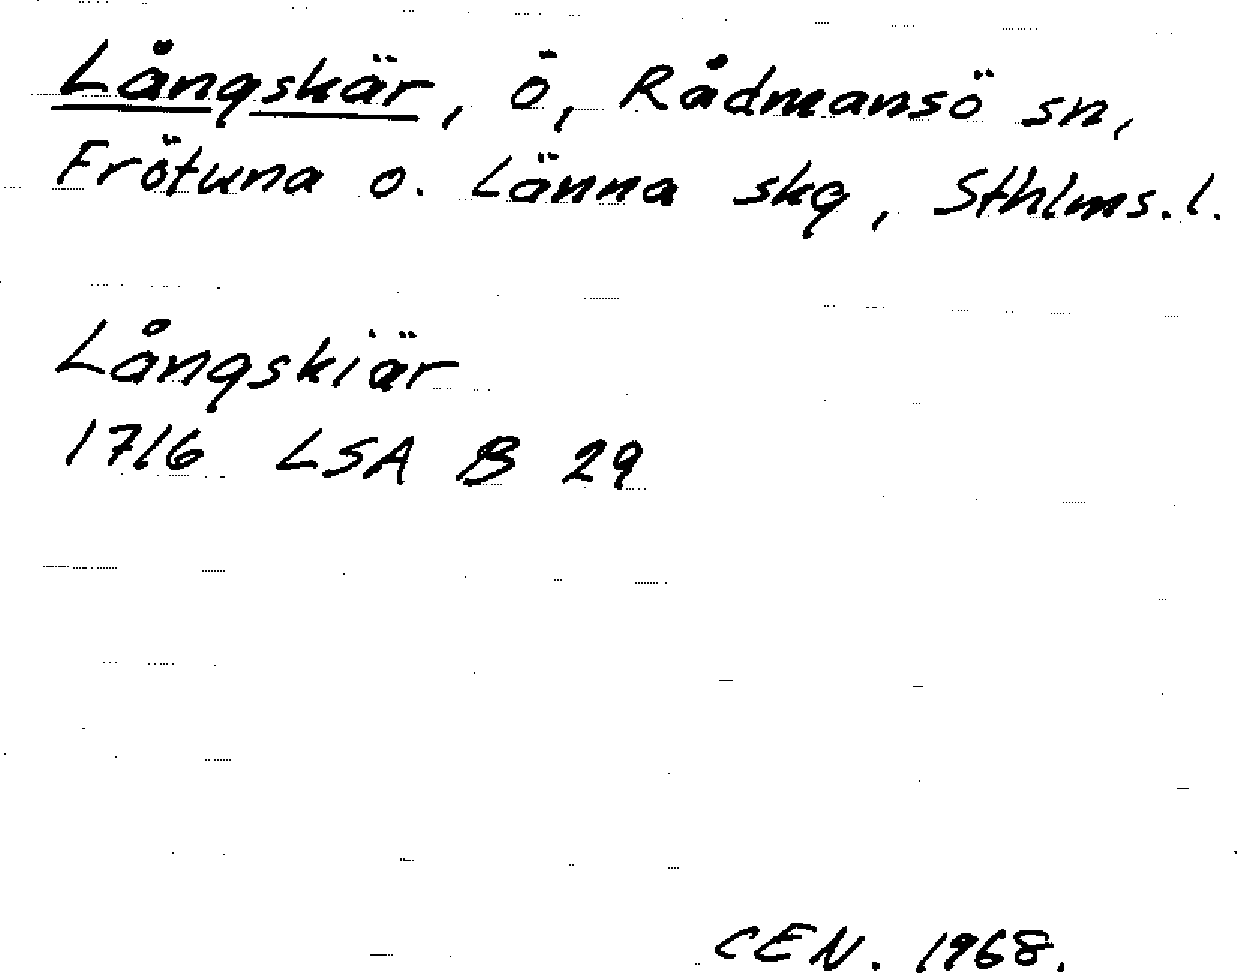 Långskär, ö, Rådmansö sn,
Frötuna o. Länna skg, Sthlms. l.
Långskiär
1716 LSA B 29
CEN. 1968.